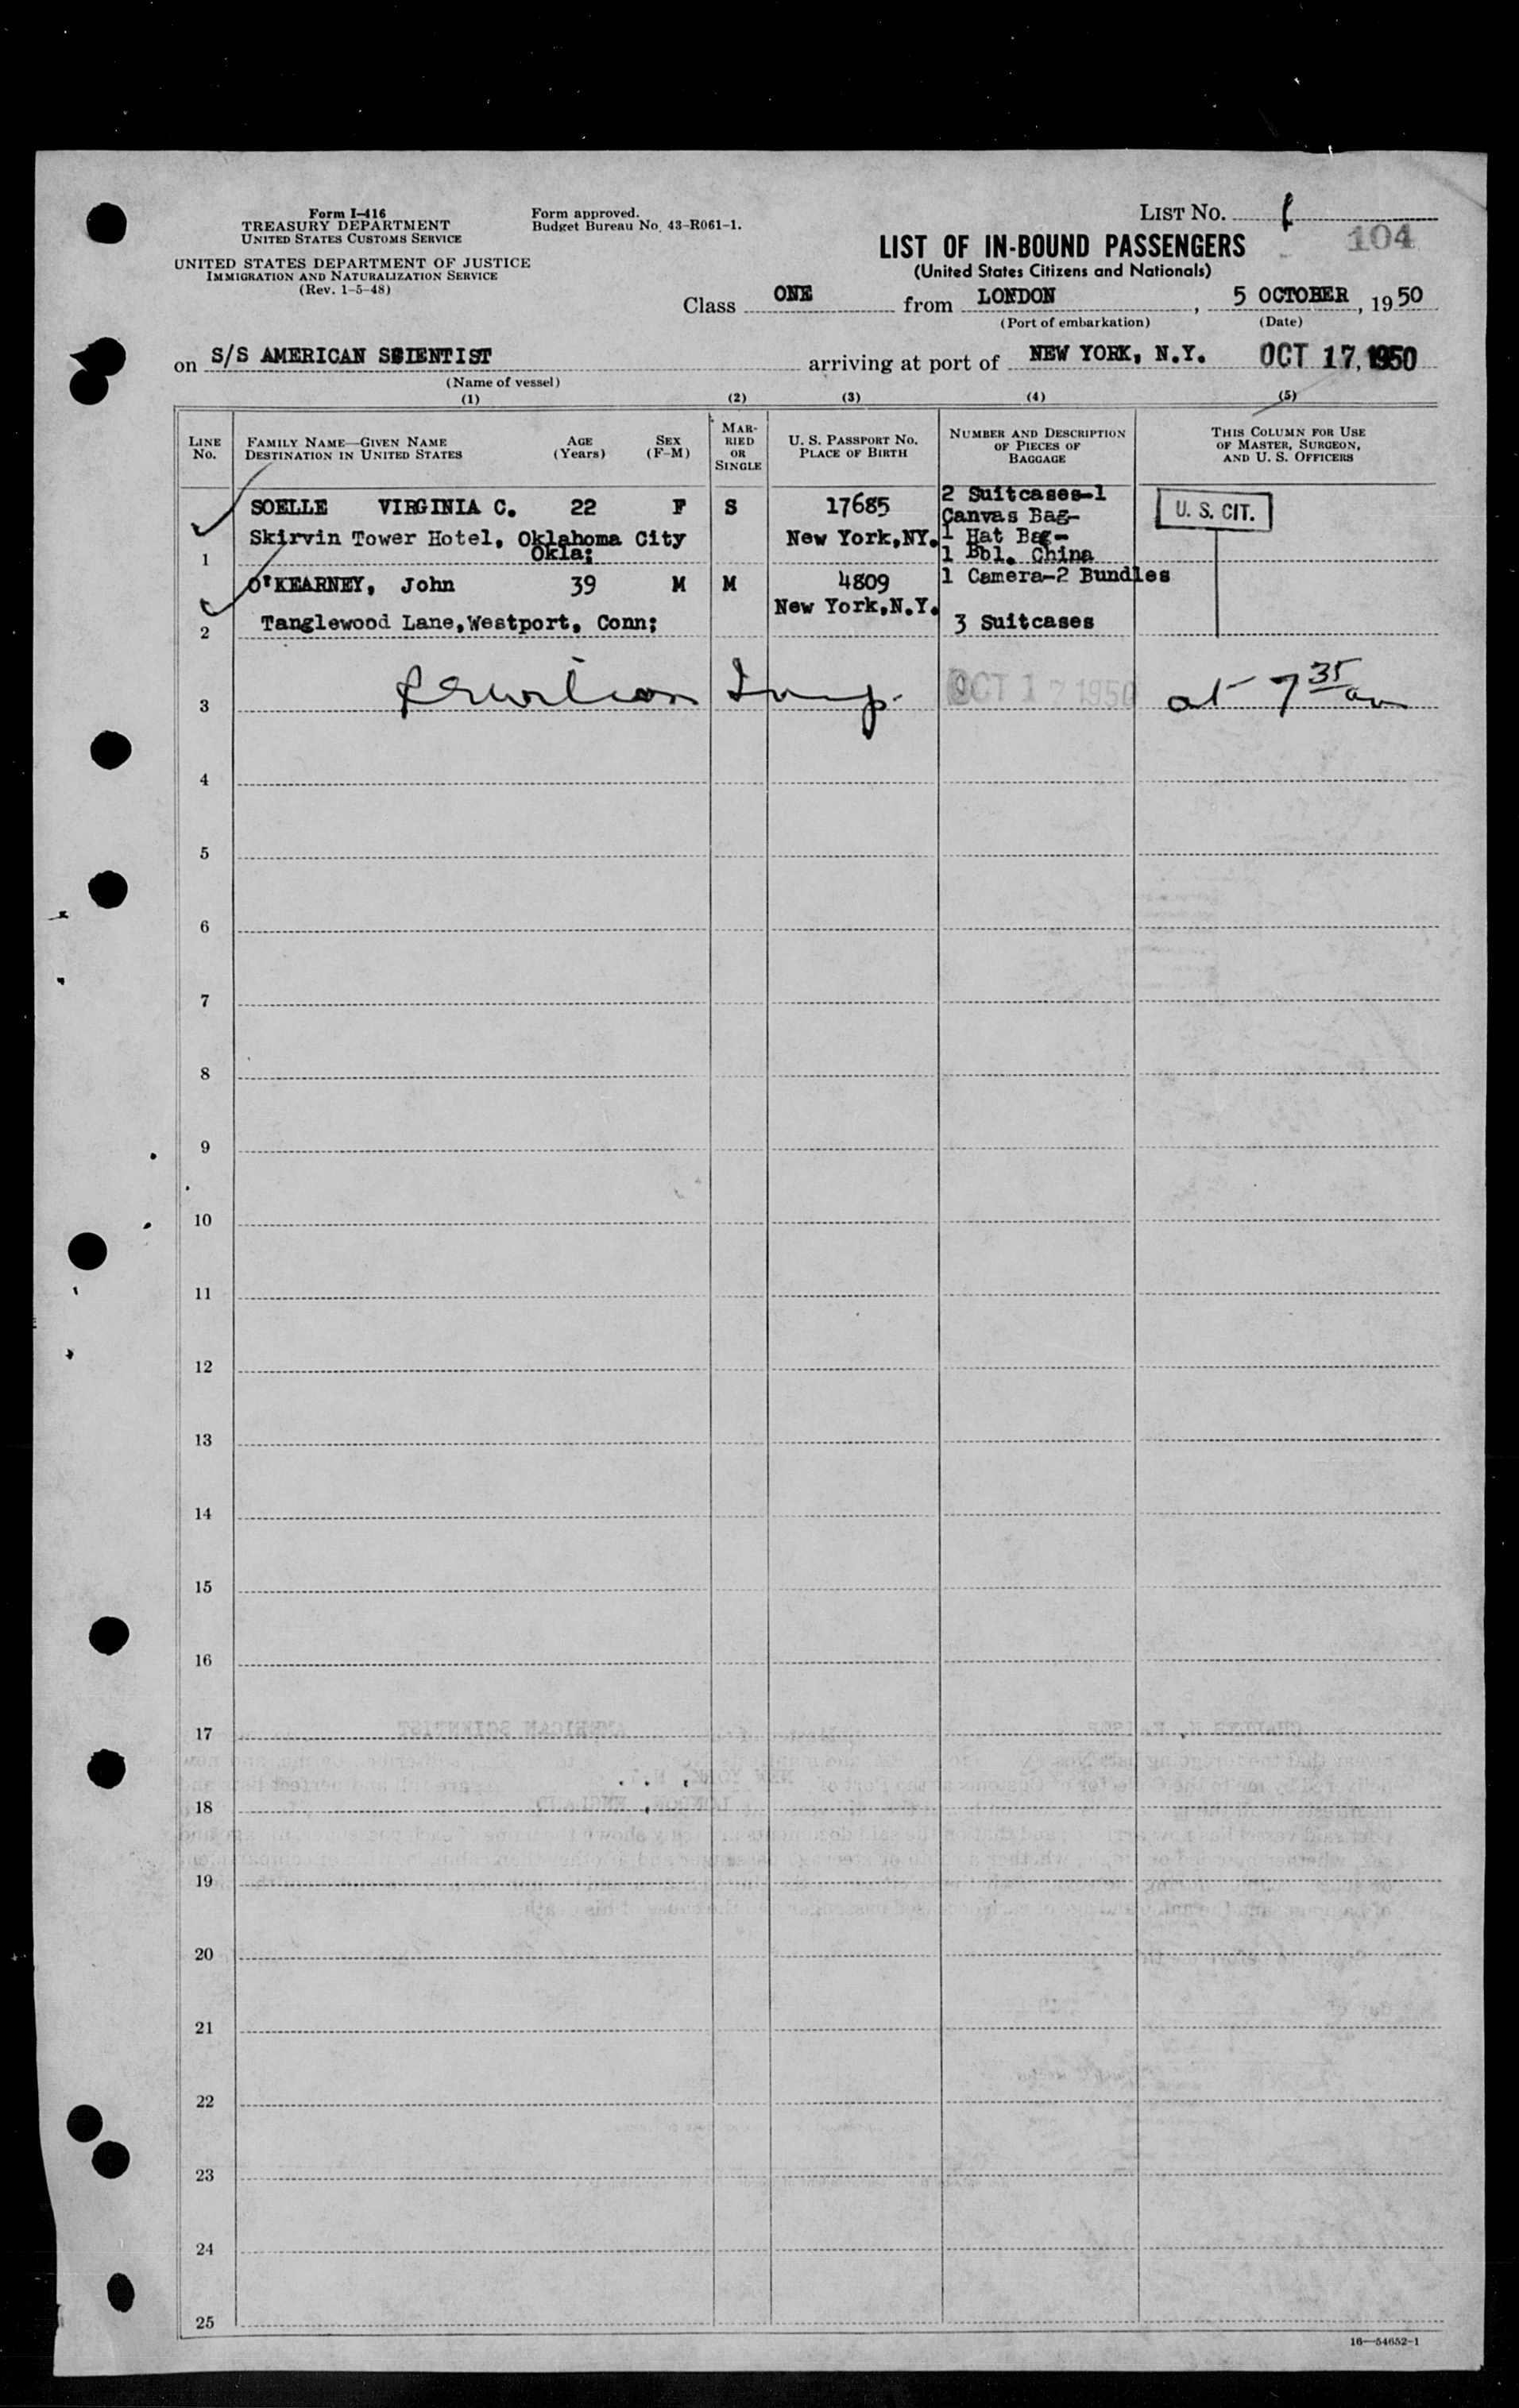 Form I-416
TREASURY DEPARTMENT
UNITED STATES CUSTOMS SERVICE
UNITED STATES DEPARTMENT OF JUSTICE
IMMIGRATION AND NATURALIZATION SERVICE
(Rev. 1-5-48)
Form approved.
Budget Bureau No. 43-R061-1.
LIST No.
104
LIST OF IN-BOUND PASSENGERS
(United States Citizens and Nationals)
Class ONE from LONDON, 5 OCTOBER, 1950
(Port of embarkation) (Date)
on S/S AMERICAN SCIENTIST arriving at port of NEW YORK, N.Y. OCT 17, 1950
(Name of vessel)
(1) (2) (3) (4) (5)
LINE No.
FAMILY NAME—GIVEN NAME
DESTINATION IN UNITED STATES
AGE (Years)
SEX (F-M)
MARRIED OR SINGLE
U. S. PASSPORT No.
PLACE OF BIRTH
NUMBER AND DESCRIPTION OF PIECES OF BAGGAGE
THIS COLUMN FOR USE OF MASTER, SURGEON, AND U. S. OFFICERS
SOELLE VIRGINIA C. 22 F S 17685 2 Suitcases-1
Canvas Bag-
U. S. CIT.
Skirvin Tower Hotel, Oklahoma City New York,NY. 1 Hat Bag-
1 Okla; 1 Bbl. China
O'KEARNEY, John 39 M M 4809 1 Camera-2 Bundles
New York,N.Y.
2 Tanglewood Lane,Westport, Conn; 3 Suitcases
3 Insp. OCT 17 1950 at 7 35 am
4
5
6
7
8
9
10
11
12
13
14
15
16
17
18
19
20
21
22
23
24
25
16—54652-1